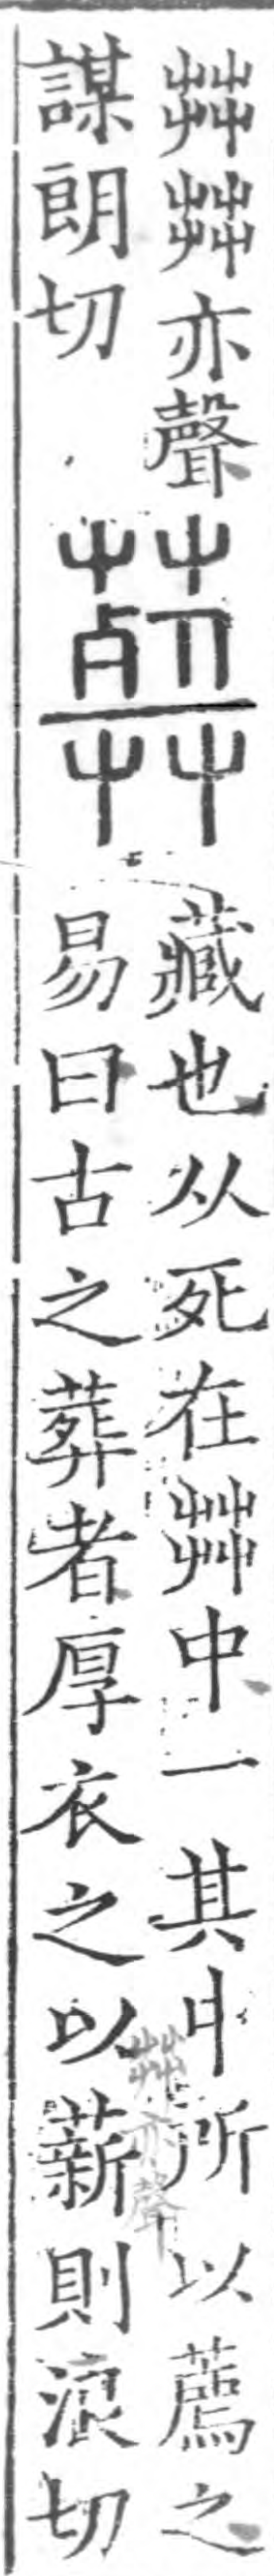 茻茻亦聲
謀朗切
葬
藏也从死在茻中一其中所以薦之
茻亦聲
易曰古之葬者厚衣之以薪則浪切